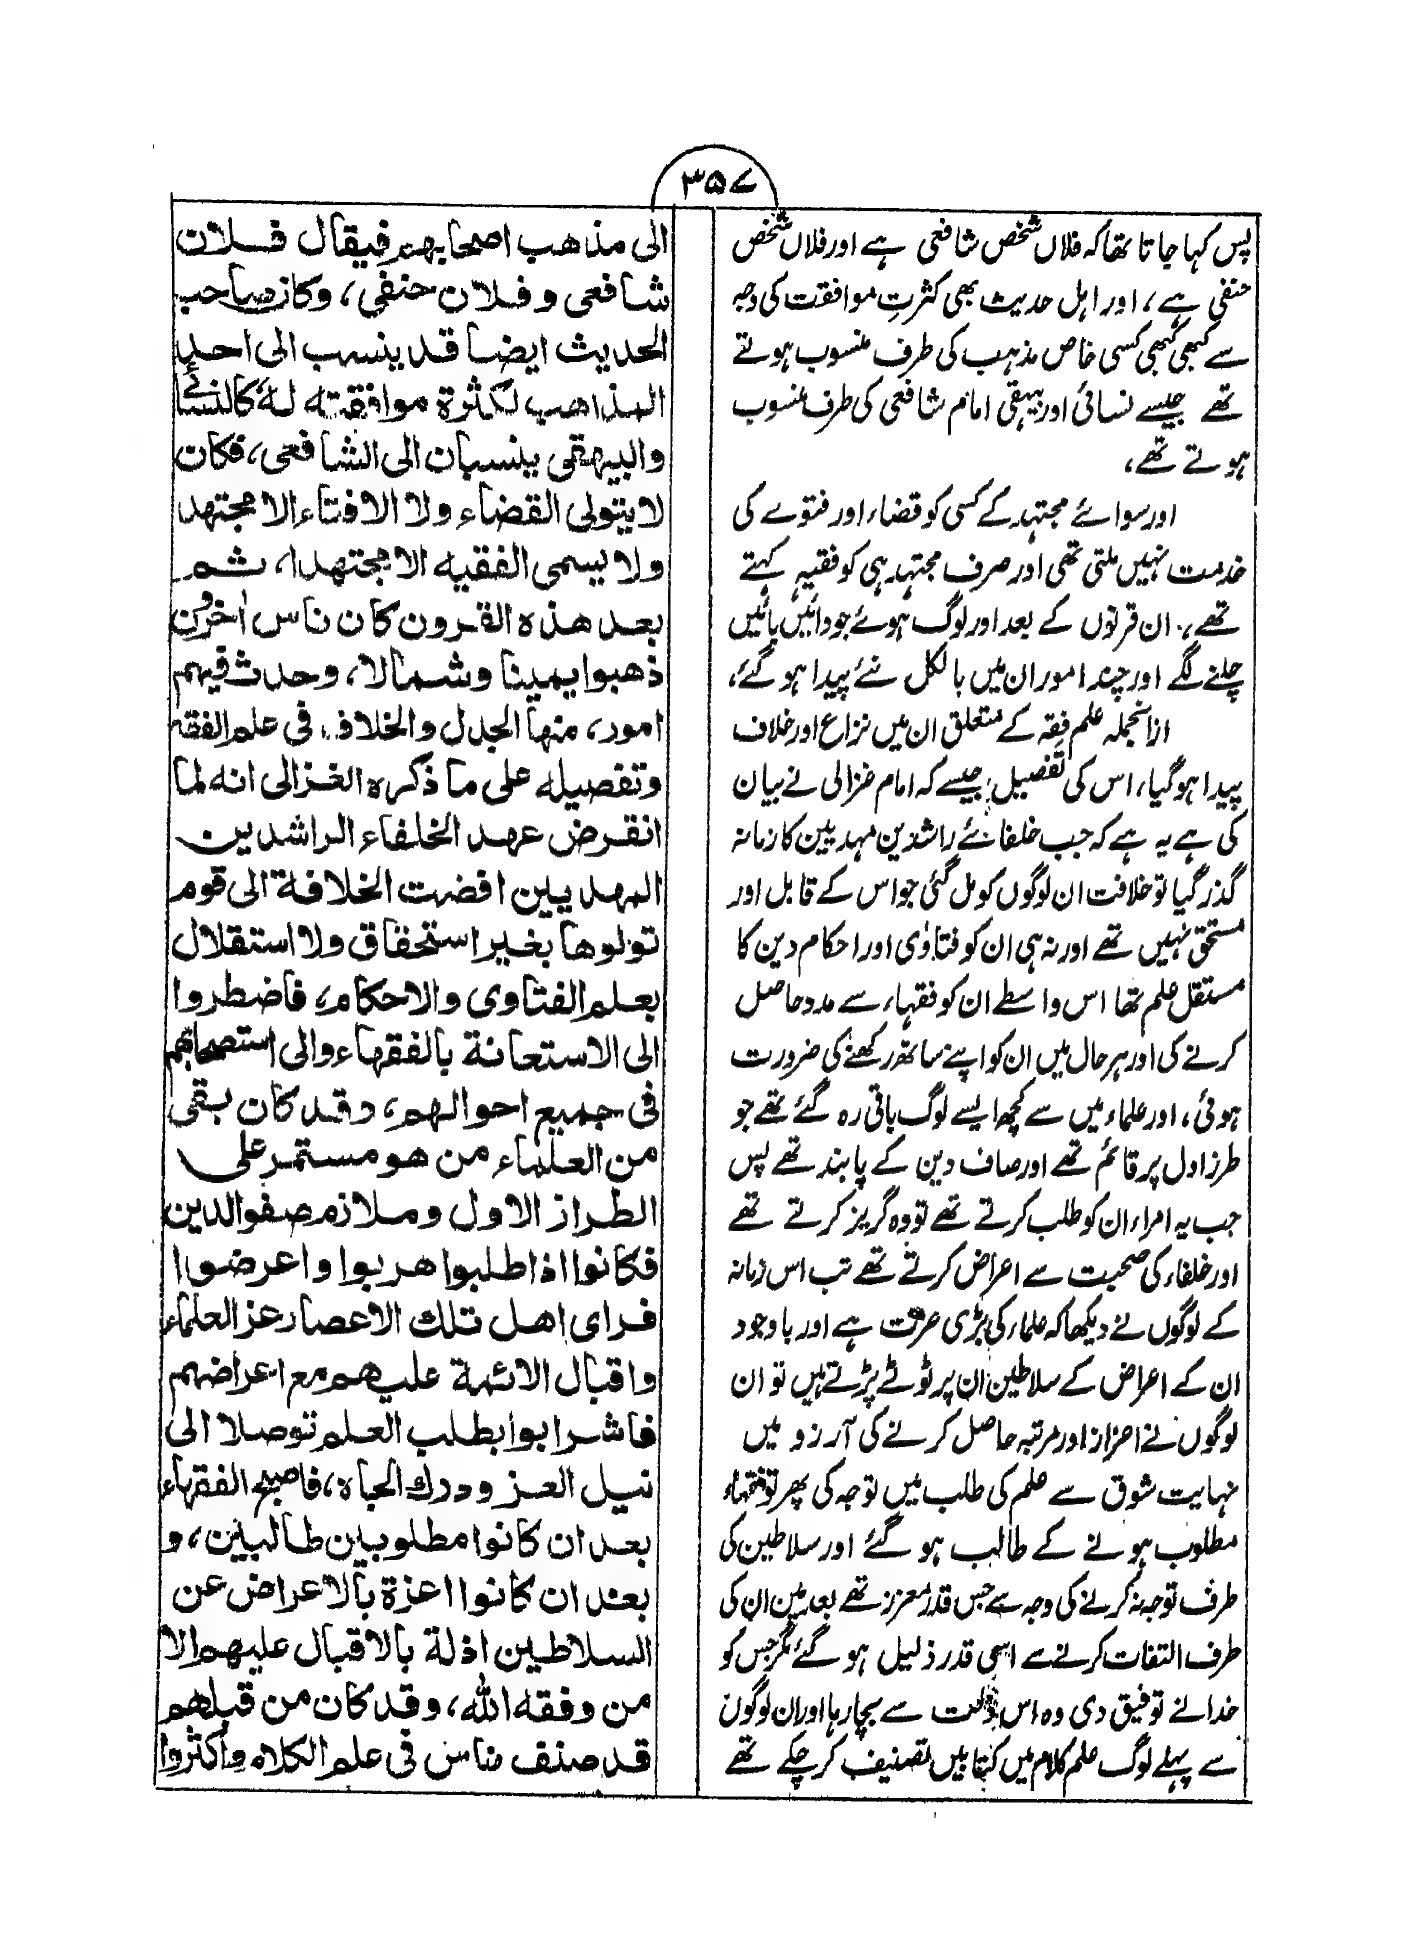 ۳۵۷
پس کہا جاتا تھا کہ فلاں شخص شافعی ہے اور فلاں شخص
حنفی ہے، اور اہل حدیث بھی کثرتِ موافقت کی وجہ
سے کبھی کبھی کسی خاص مذہب کی طرف منسوب ہوتے
تھے جیسے نسائی اور بیہقی امام شافعی کی طرف منسوب
ہوتے تھے،
اور سوائے مجتہد کے کسی کو قضاء اور فتوے کی
خدمت نہیں ملتی تھی اور صرف مجتہد ہی کو فقیہ کہتے
تھے، ان قرنوں کے بعد اور لوگ ہوئے جو دائیں بائیں
چلنے لگے اور چند امور ان میں بالکل نئے پیدا ہو گئے،
ازانجملہ علم فقہ کے متعلق ان میں نزاع اور خلاف
پیدا ہو گیا، اس کی تفصیل جیسے کہ امام غزالی نے بیان
کی ہے یہ ہے کہ جب خلفائے راشدین مہدیین کا زمانہ
گذر گیا تو خلافت ان لوگوں کو مل گئی جو اس کے قابل اور
مستحق نہیں تھے اور نہ ہی ان کو فتاوٰی اور احکام دین کا
مستقل علم تھا اس واسطے ان کو فقہاء سے مدد حاصل
کرنے کی اور ہر حال میں ان کو اپنے ساتھ رکھنے کی ضرورت
ہوئی، اور علماء میں سے کچھ ایسے لوگ باقی رہ گئے تھے جو
طرز اول پر قائم تھے اور صاف دین کے پابند تھے پس
جب یہ امراء ان کو طلب کرتے تھے تو وہ گریز کرتے تھے
اور خلفاء کی صحبت سے اعراض کرتے تھے تب اس زمانہ
کے لوگوں نے دیکھا کہ علماء کی بڑی عزت ہے اور باوجود
ان کے اعراض کے سلاطین ان پر ٹوٹے پڑتے ہیں تو ان
لوگوں نے اعزاز اور مرتبہ حاصل کرنے کی آرزو میں
نہایت شوق سے علم کی طلب میں توجہ کی پھر تو فقہاء
مطلوب ہونے کے طالب ہو گئے اور سلاطین کی
طرف توجہ نہ کرنے کی وجہ سے جس قدر معزز تھے بعد میں ان کی
طرف التفات کرنے سے اسی قدر ذلیل ہو گئے مگر جس کو
خدا نے توفیق دی وہ اس ذلت سے بچا رہا اور ان لوگوں
سے پہلے لوگ علم کلام میں کتابیں تصنیف کر چکے تھے
الی مذاهب اصحابهم فیقال فلان
شافعی و فلان حنفی، وکان صاحب
الحدیث ایضا قد ینسب الی احد
المذاهب لکثرة موافقته له کالنسائی
والبیهقی ینسبان الی الشافعی، فکان
لا یتولی القضاء ولا الافتاء الا مجتهد
ولا یسمی الفقیه الا مجتهدا، ثم
بعد هذه القرون کان ناس اٰخرون
ذهبوا یمینا وشمالا، وحدث فیهم
امور، منها الجدل والخلاف فی علم الفقه
وتفصیله علی ما ذکره الغزالی انه لما
انقرض عهد الخلفاء الراشدین
المهدیین افضت الخلافة الی قوم
تولوها بغیر استحقاق ولا استقلال
بعلم الفتاوی والاحکام، فاضطروا
الی الاستعانة بالفقهاء والی استصحابهم
فی جمیع احوالهم، وقد کان بقی
من العلماء من هو مستمر علی
الطراز الاول وملازم صفو الدین
فکانوا اذا طلبوا هربوا واعرضوا
فرای اهل تلك الاعصار عز العلماء
واقبال الائمة علیهم مع اعراضهم
فاشرابوا بطلب العلم توصلا الی
نیل العز ودرك الجاه، فاصبح الفقهاء
بعد ان کانوا مطلوبین طالبین، و
بعد ان کانوا اعزة بالاعراض عن
السلاطین اذلة بالاقبال علیهم الا
من وفقه الله، وقد کان من قبلهم
قد صنف ناس فی علم الکلام واکثروا